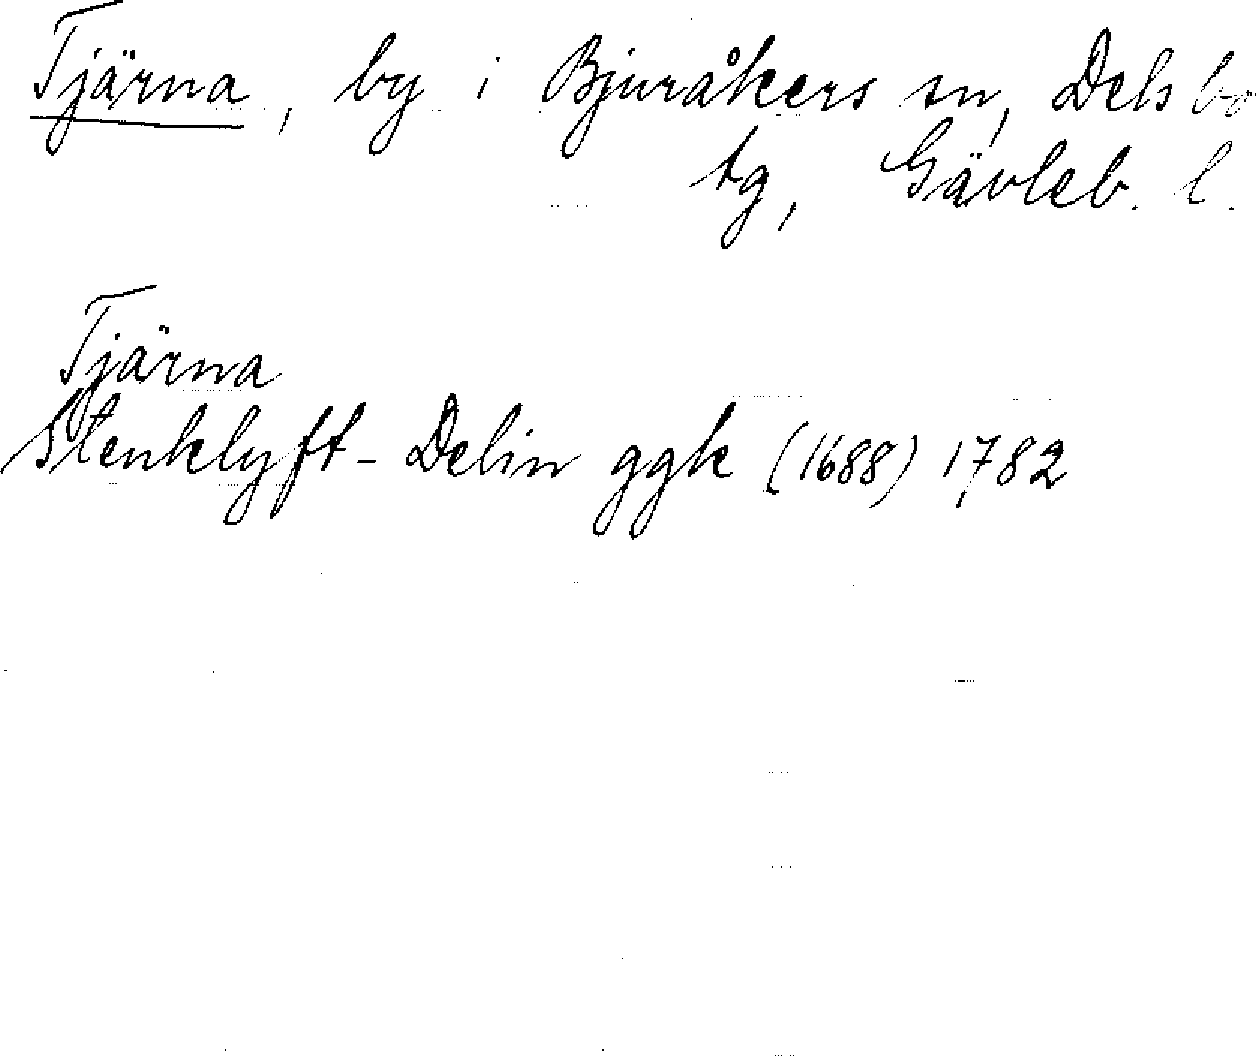 Tjärna, by i Bjuråkers sn, Delsbo
tg, Gävleb. l.
Tjärna
Stenklyft - Delin ggk (1688) 1782